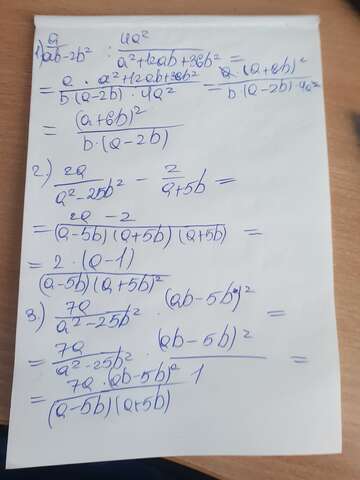 1) a/(ab-2b²) : 4a²/(a²+12ab+36b²) =
= a · a²+12ab+36b² / b(a-2b) · 4a² = a · (a+6b)² / b(a-2b) · 4a²
= (a+6b)² / b·(a-2b)
2) 2a/(a²-25b²) - 2/(a+5b) =
= 2a-2 / (a-5b)(a+5b)(a+5b) =
= 2·(a-1) / (a-5b)(a+5b)²
3) 7a/(a²-25b²) · (ab-5b²)² =
= 7a/(a²-25b²) · (ab-5b)²/1 =
= 7a·(ab-5b)² / (a-5b)(a+5b)